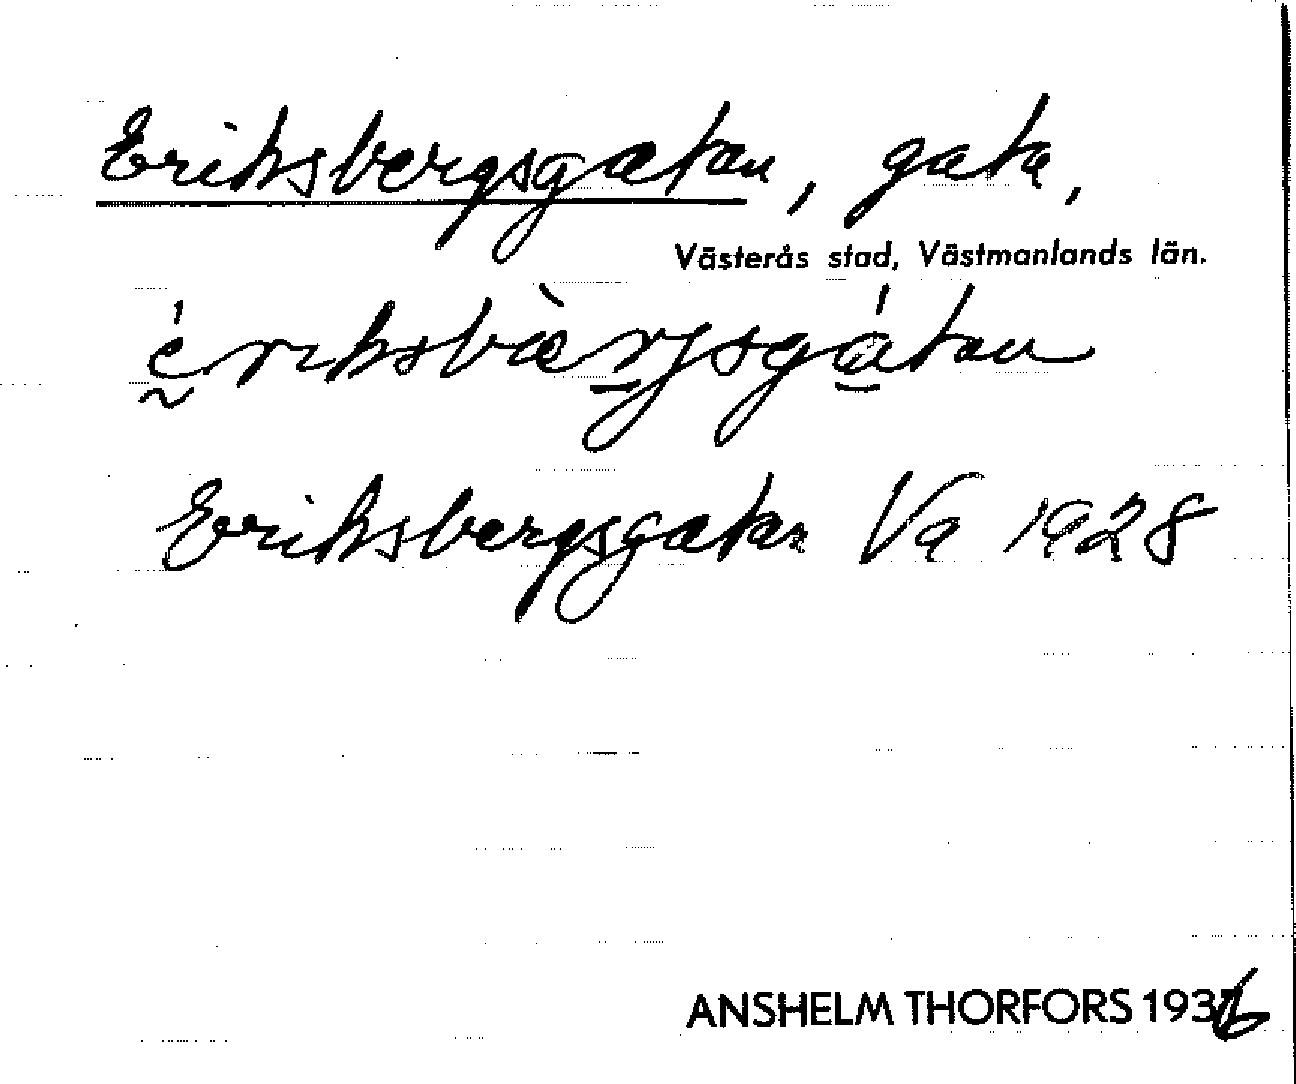 Eriksbergsgatan, gata,
Västerås stad, Västmanlands län.
ériksbæ̀rjsgátan
Eriksbergsgatan Va 1928
ANSHELM THORFORS 1936